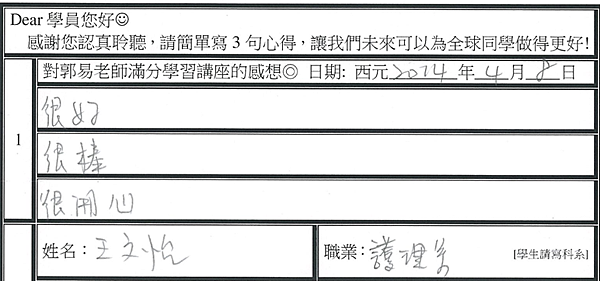 Dear 學員您好☺
感謝您認真聆聽，請簡單寫 3 句心得，讓我們未來可以為全球同學做得更好!
對郭易老師滿分學習講座的感想◎ 日期: 西元 2014 年 4 月 8 日
1
很好
很棒
很開心
姓名：王文怡
職業：護理系 [學生請寫科系]